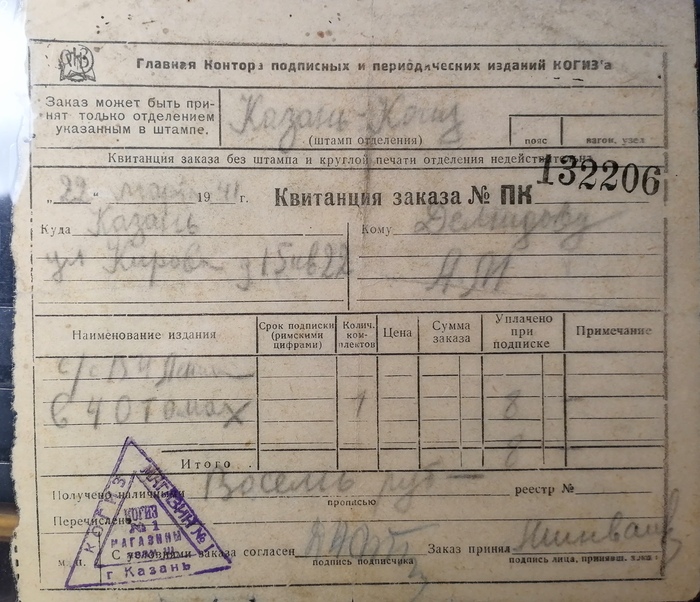 Главная Контора подписных и периодических изданий КОГИЗ'а
Заказ может быть при-
нят только отделением
указанным в штампе.
Казань Когиз
(штамп отделения)
пояс
вагон. узел
Квитанция заказа без штампа и круглой печати отделения недействительна
„22" марта 1941 г.
Квитанция заказа № ПК 132206
Куда Казань
ул Кирова д 15 кв 22
Кому Демидову
АМ
Наименование издания
Срок подписки (римскими цифрами)
Колич. ком-плектов
Цена
Сумма заказа
Уплачено при подписке
Примечание
с/с В И Ленин
в 40 томах 1 8 —
Итого 8
Получено наличными Восемь руб —
прописью
реестр №
Перечислено
м. п. С условиями заказа согласен
подпись подписчика
Заказ принял
подпись лица, принявш. заказ
КОГИЗ
МАГАЗИН № 1
КОГИЗ
№ 1
МАГАЗИНЫ
г Казань